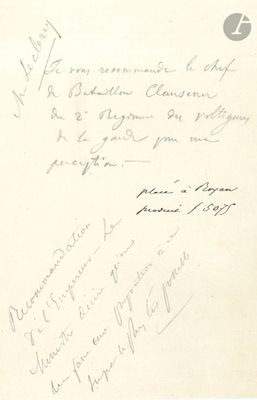 M. Leclerq
Je vous recommande le chef
de Bataillon Clausener
du 2e Régiment des voltigeurs
de la garde pour une
perception.—
placé à Royan
produit f 5075
Recommandation
de l'Empereur — Le
Ministre désire qu'on
lui fasse une proposition à ce
sujet le plus tôt possible